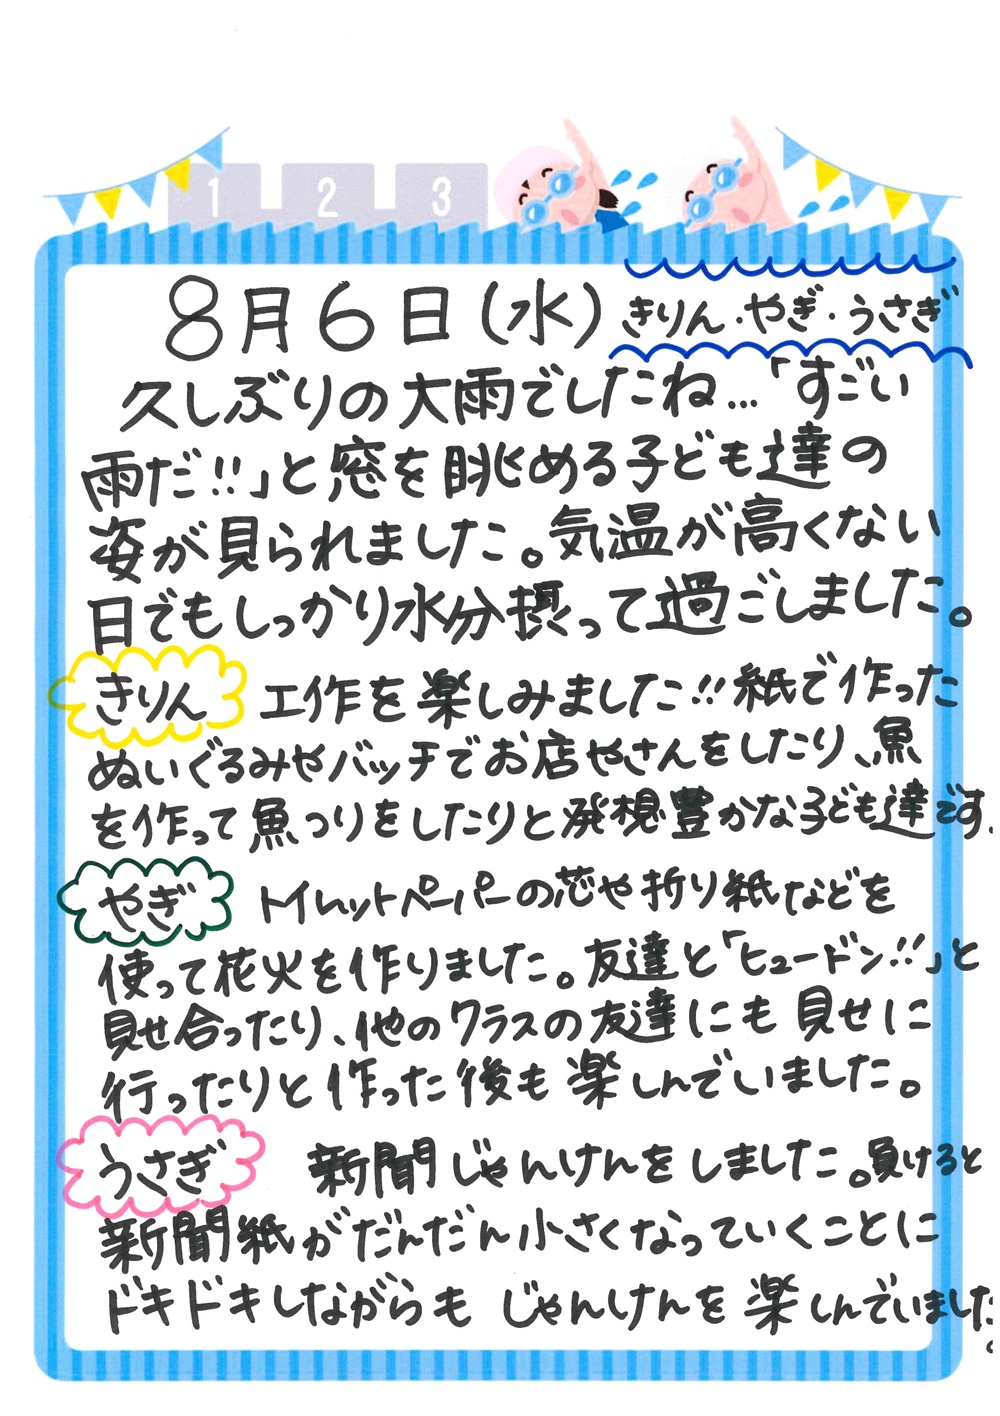 1 2 3
8月6日(水) きりん・やぎ・うさぎ
久しぶりの大雨でしたね…「すごい
雨だ!!」と窓を眺める子ども達の
姿が見られました。気温が高くない
日でもしっかり水分摂って過ごしました。
きりん 工作を楽しみました!!紙で作った
ぬいぐるみやバッチでお店やさんをしたり、魚
を作って魚つりをしたりと発想豊かな子ども達です。
やぎ トイレットペーパーの芯や折り紙などを
使って花火を作りました。友達と「ヒュードン!!」と
見せ合ったり、他のクラスの友達にも見せに
行ったりと作った後も楽しんでいました。
うさぎ 新聞じゃんけんをしました。負けると
新聞紙がだんだん小さくなっていくことに
ドキドキしながらもじゃんけんを楽しんでいました。